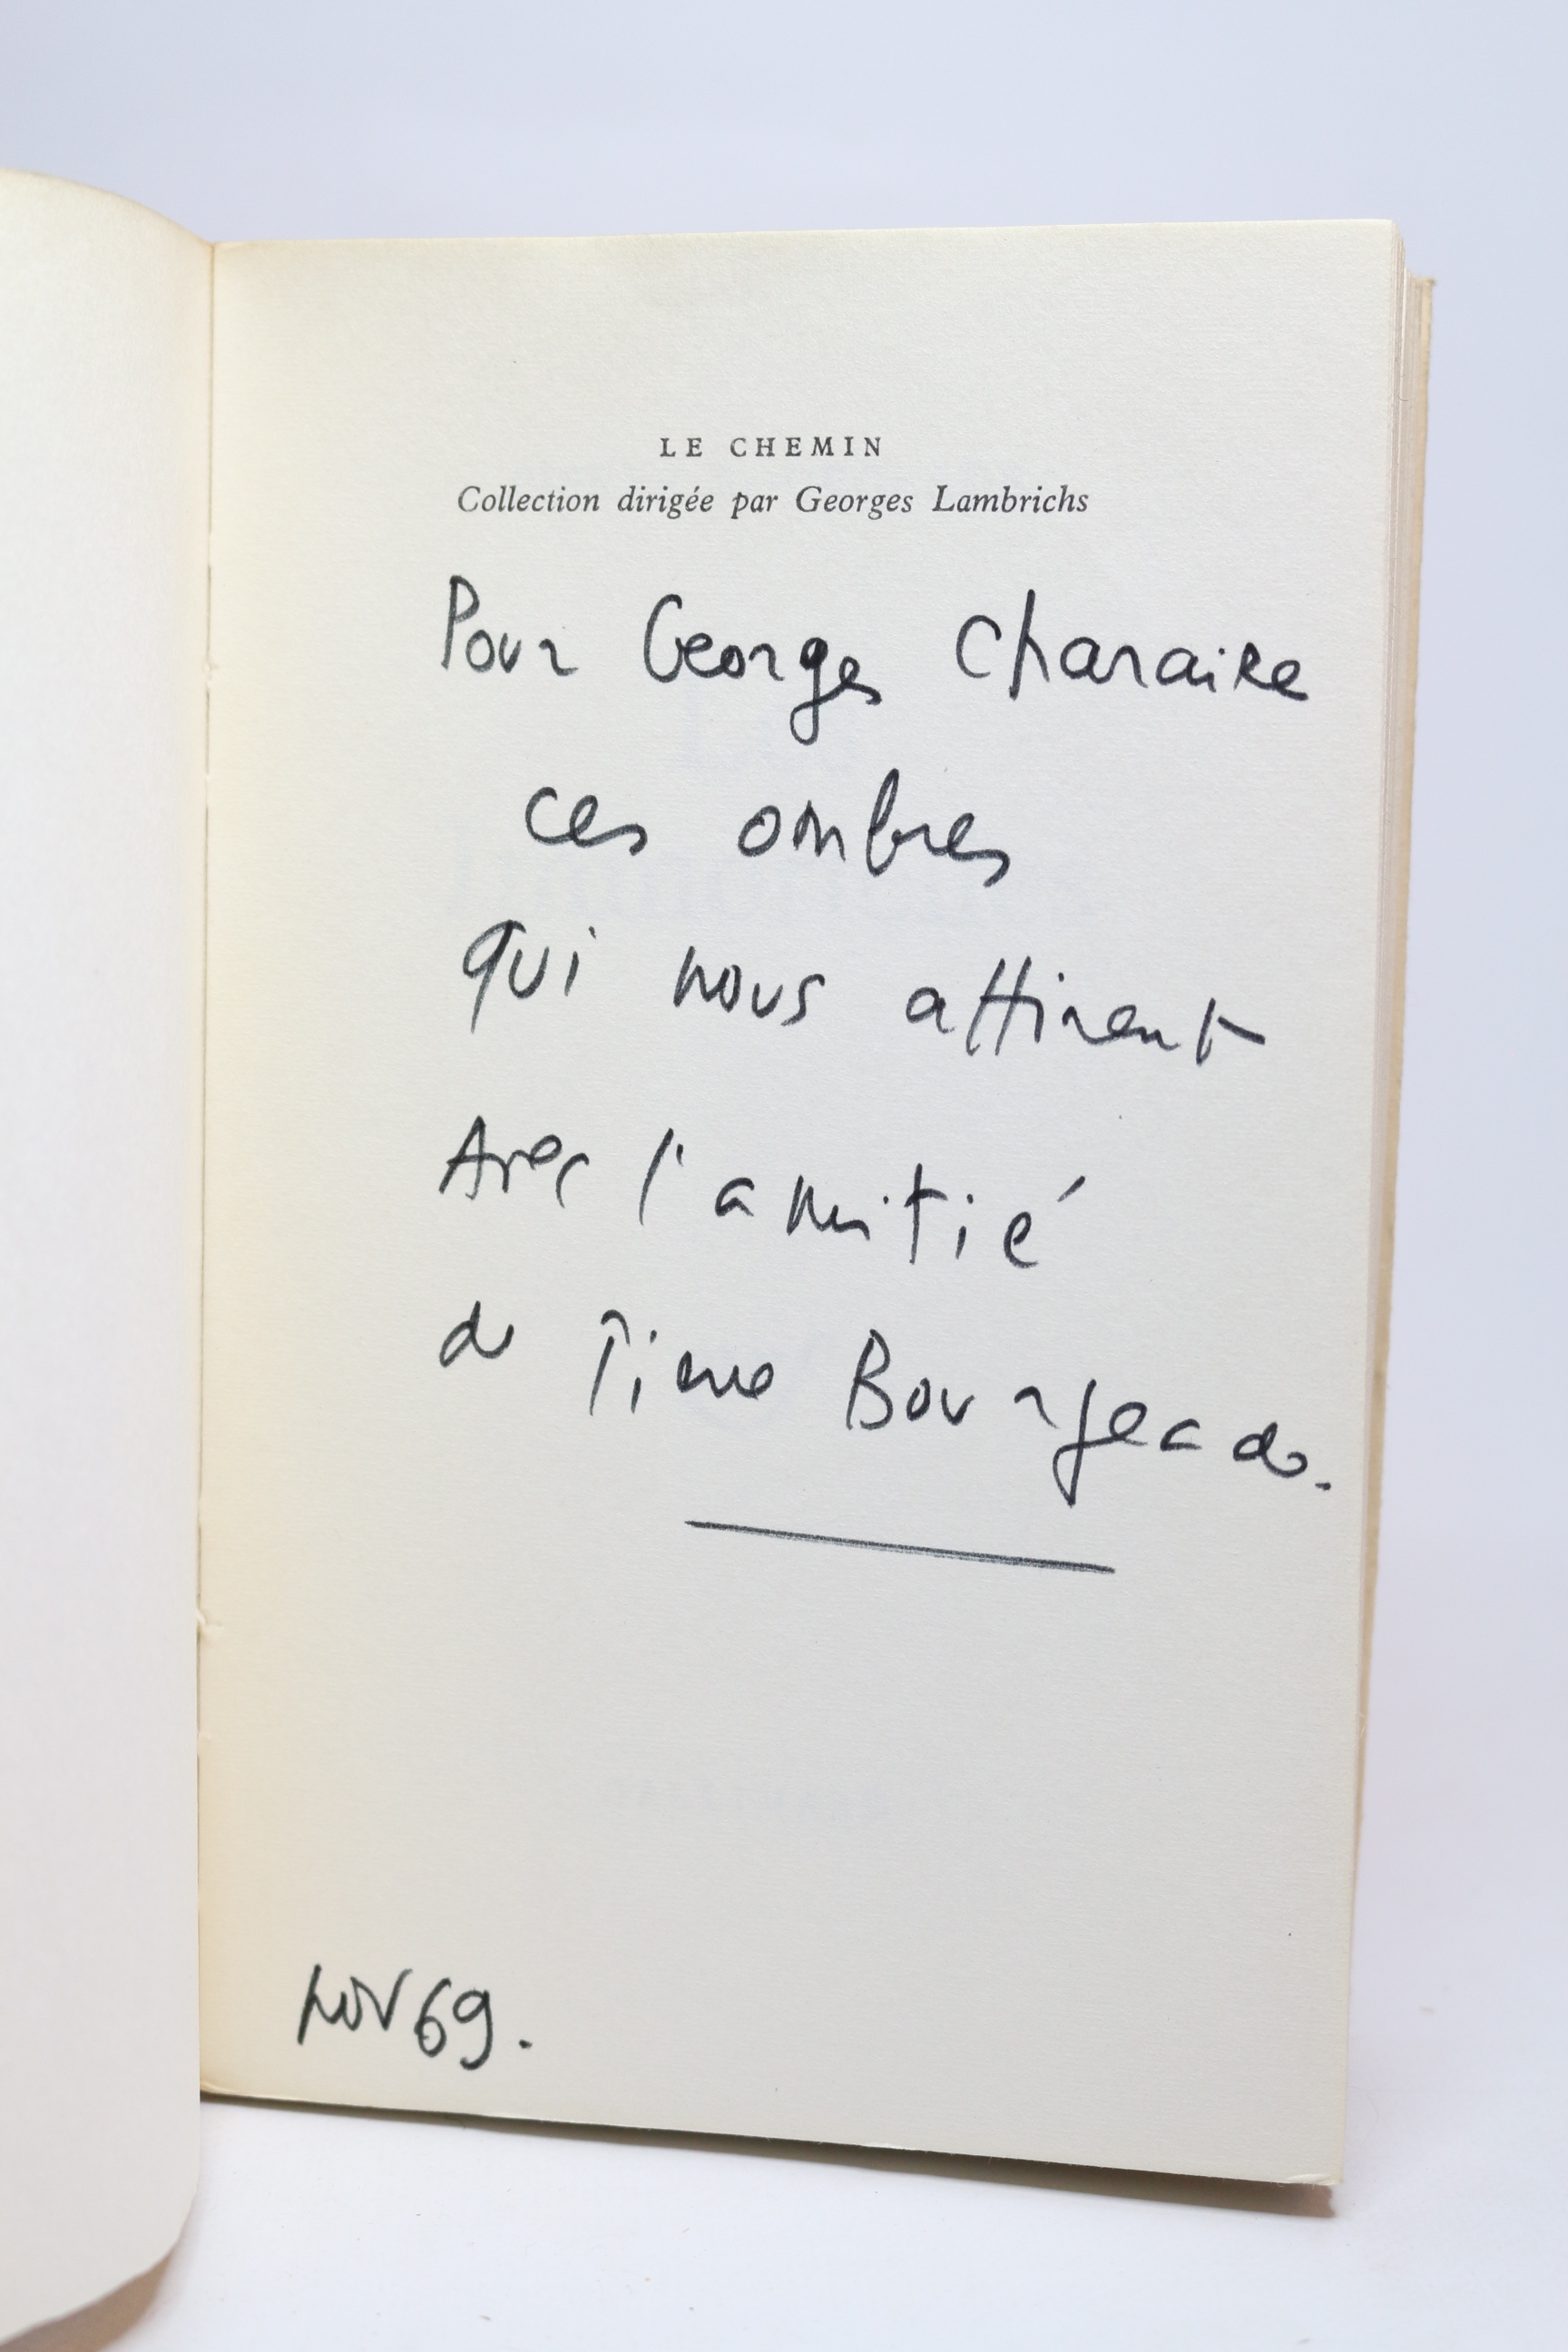 LE CHEMIN
Collection dirigée par Georges Lambrichs
Pour Georges Charaire
ces ombres
qui nous attirent
Avec l'amitié
de Pierre Bourgeade.
Nov 69.